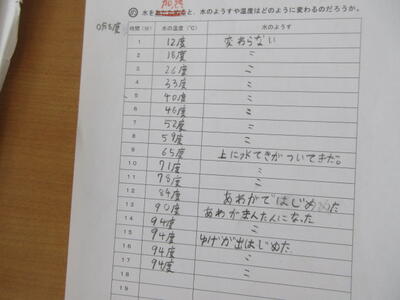 加熱
水をあたためると、水のようすや温度はどのように変わるのだろうか。
0分8度
時間(分) 水の温度(℃) 水のようす
1 12度 変わらない
2 18度 〃
3 26度 〃
4 33度 〃
5 40度 〃
6 46度 〃
7 52度 〃
8 59度 〃
9 65度 上に水てきがついてきた。
10 71度 〃
11 78度 〃
12 84度 あわがではじめた
13 90度 あわがまんたんになった
14 94度 〃
15 94度 ゆげが出はじめた
16 94度 〃
17 94度 〃
18
19